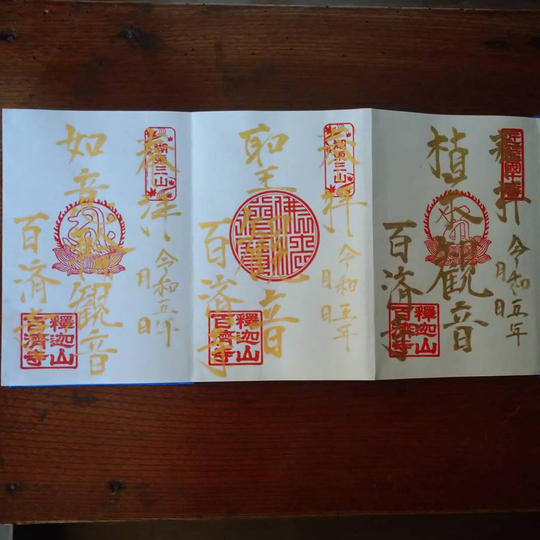 奉拝
令和五年
月日
植木観音
百済寺
釋迦山
百濟寺
湖東三山
奉拝
令和五年
月日
聖観音
百済寺
釋迦山
百濟寺
湖東三山
奉拝
令和五年
月日
如意輪観音
百済寺
釋迦山
百濟寺